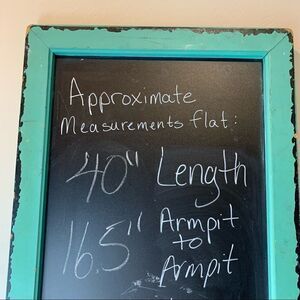 Approximate
Measurements flat:
40" Length
16.5" Armpit
to
Armpit